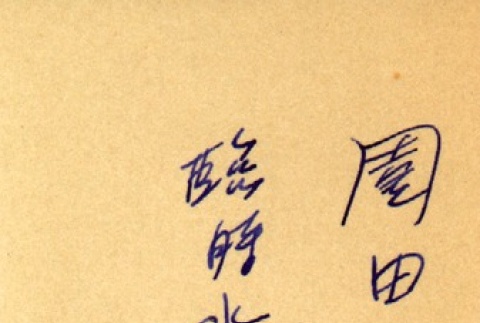 園田
臨時